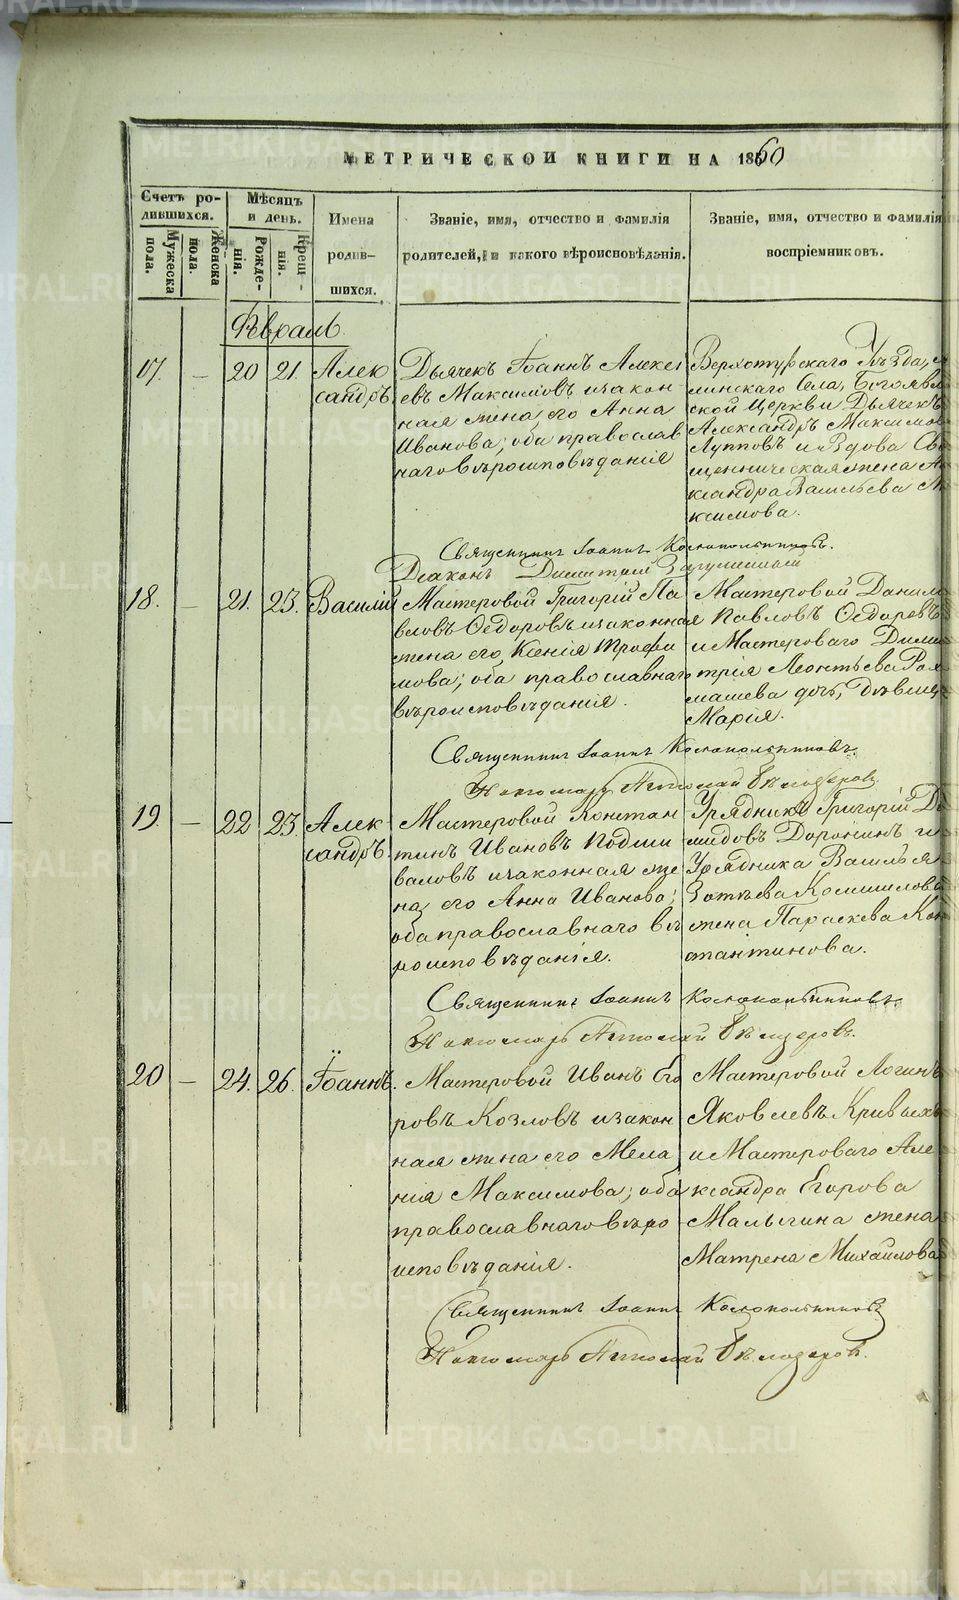 МЕТРИЧЕСКОЙ КНИГИ НА 1860
Счетъ ро-
дившихся.
Мужеска
пола.
Женска
пола.
Мѣсяцъ
и день.
Рожде-
нія.
Крещ-
нія.
Имена
родив-
шихся.
Званіе, имя, отчество и фамилія
родителей, и какого вѣроисповѣданія.
Званіе, имя, отчество и фамилія
воспріемниковъ.
Февраль
17. – 20 21. Алек
сандръ.
Дьячекъ Іоаннъ Алексѣ
евъ Максимовъ и закон
ная жена его Анна
Иванова; оба православ
наго вѣроисповѣданія
Верхотурскаго Уѣзда,
линскаго Села, Богоявле
ской Церкви Дьячекъ
Александръ Максимов
Лупповъ и Вдова Свя
щенническая жена Але
ксандра Васильева Ма
ксимова.
Священникъ Іоаннъ
Діаконъ Димитрій
18. – 21. 23. Василій
Мастеровой Григорій Па
вловъ Ѳедоровъ и законная
жена его, Ксенія Трофи
мова; оба православнаго
вѣроисповѣданія.
Мастеровой Данил
Павловъ Ѳедоровъ
и Мастероваго Дими
трія Леонтьева Рах
машева дочь, дѣвица
Марія.
Священникъ Іоаннъ
Пономарь Николай Бѣлозеровъ
19. – 22 23 Алек
сандръ.
Мастеровой Констан
тинъ Ивановъ Подши
валовъ и законная же
на, его Анна Иванова;
оба православнаго вѣ
роисповѣданія.
Урядникъ Григорій Де
мидовъ Доронинъ и
Урядника Василья
Зотѣева
жена Параскева Кон
стантинова.
Священникъ Іоаннъ
Пономарь Николай Бѣлозеровъ.
20 – 24. 26. Іоаннъ.
Мастеровой Иванъ Его
ровъ Козловъ и закон
ная жена его Мела
нія Максимова; оба
православнаго вѣро
исповѣданія.
Мастеровой Логинъ
Яковлевъ Кривыхъ
и Мастероваго Але
ксандра Егорова
Малыгина жена
Матрена Михайлова
Священникъ Іоаннъ
Пономарь Николай Бѣлозеровъ.
METRIKI.GASO-URAL.RU